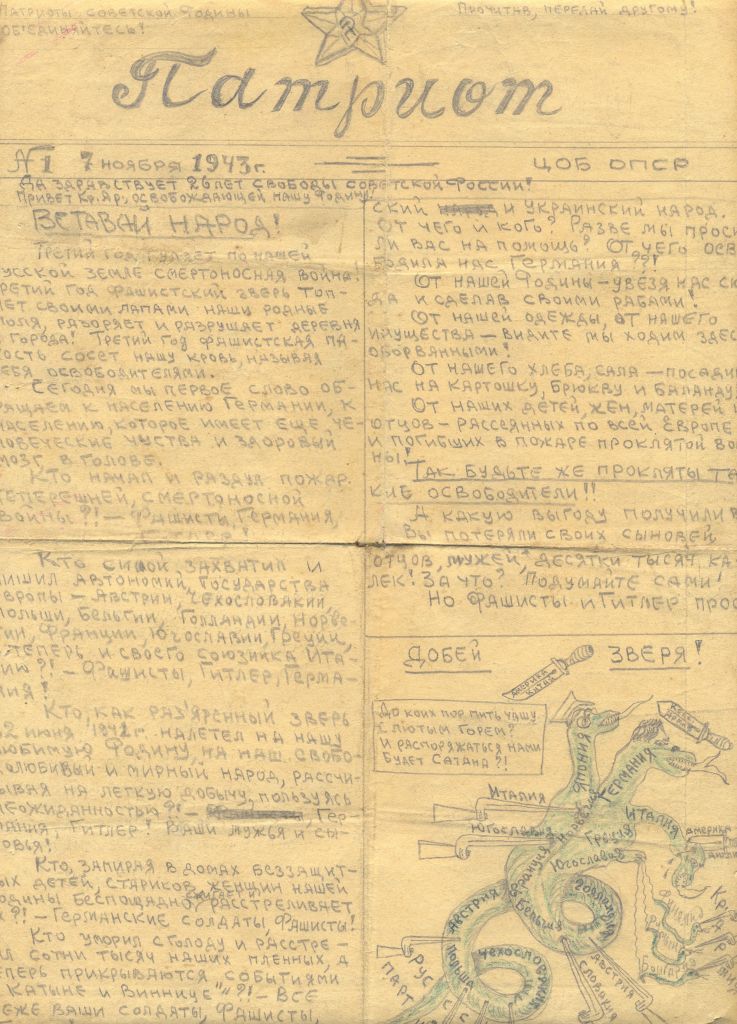 ПАТРИОТЫ СОВЕТСКОЙ РОДИНЫ
ОБ'ЕДИНЯЙТЕСЬ!
ПРОЧИТАВ, ПЕРЕДАЙ ДРУГОМУ!
Патриот
№1 7 НОЯБРЯ 1943 г. ЦОБ ОПСР
ДА ЗДРАВСТВУЕТ 26 ЛЕТ СВОБОДЫ СОВЕТСКОЙ РОССИИ!
ПРИВЕТ КР. АР., ОСВОБОЖДАЮЩЕЙ НАШУ РОДИНУ!
ВСТАВАЙ НАРОД!
ТРЕТИЙ ГОД ГУЛЯЕТ ПО НАШЕЙ
РУССКОЙ ЗЕМЛЕ СМЕРТОНОСНАЯ ВОЙНА!
ТРЕТИЙ ГОД ФАШИСТСКИЙ ЗВЕРЬ ТОП-
ЧЕТ СВОИМИ ЛАПАМИ НАШУ РОДНЫЕ
ПОЛЯ, РАЗОРЯЕТ И РАЗРУШАЕТ ДЕРЕВНЯ
И ГОРОДА! ТРЕТИЙ ГОД ФАШИСТСКАЯ ПА-
КОСТЬ СОСЕТ НАШУ КРОВЬ, НАЗЫВАЯ
СЕБЯ ОСВОБОДИТЕЛЯМИ.
СЕГОДНЯ МЫ ПЕРВОЕ СЛОВО ОБ-
РАЩАЕМ К НАСЕЛЕНИЮ ГЕРМАНИИ, К
НАСЕЛЕНИЮ, КОТОРОЕ ИМЕЕТ ЕЩЕ ЧЕ-
ЛОВЕЧЕСКИЕ ЧУСТВА И ЗДОРОВЫЙ
МОЗГ В ГОЛОВЕ.
КТО НАЧАЛ И РАЗДУЛ ПОЖАР
ТЕПЕРЕШНЕЙ, СМЕРТОНОСНОЙ
ВОЙНЫ?! – ФАШИСТЫ, ГЕРМАНИЯ,
ГИТЛЕР!
КТО СИЛОЙ ЗАХВАТИЛ И
ЛИШИЛ АВТОНОМИЙ, ГОСУДАРСТВА
ЕВРОПЫ – АВСТРИИ, ЧЕХОСЛОВАКИИ,
ПОЛЬШИ, БЕЛЬГИИ, ГОЛЛАНДИИ, НОРВЕ-
ГИИ, ФРАНЦИИ, ЮГОСЛАВИИ, ГРЕЦИИ,
А ТЕПЕРЬ И СВОЕГО СОЮЗНИКА ИТА-
ЛИЮ?! – ФАШИСТЫ, ГИТЛЕР, ГЕРМА-
НИЯ!
КТО, КАК РАЗ'ЯРЕННЫЙ ЗВЕРЬ
22 ИЮНЯ 1941 г. НАЛЕТЕЛ НА НАШУ
ЛЮБИМУЮ РОДИНУ, НА НАШ СВОБО-
ДОЛЮБИВЫЙ И МИРНЫЙ НАРОД, РАССЧИ-
ТЫВАЯ НА ЛЕГКУЮ ДОБЫЧУ, ПОЛЬЗУЯСЬ
НЕОЖИДАННОСТЬЮ?! – ГЕР-
МАНИЯ, ГИТЛЕР! ВАШИ МУЖЬЯ И СЫ-
НОВЬЯ!
КТО, ЗАПИРАЯ В ДОМАХ БЕЗЗАЩИТ-
НЫХ ДЕТЕЙ, СТАРИКОВ, ЖЕНЩИН НАШЕЙ
РОДИНЫ БЕСПОЩАДНО РАССТРЕЛИВАЕТ
ИХ?! – ГЕРМАНСКИЕ СОЛДАТЫ, ФАШИСТЫ!
КТО УМОРИЛ С ГОЛОДУ И РАССТРЕ-
ЛЯЛ СОТНИ ТЫСЯЧ НАШИХ ПЛЕННЫХ, А
ТЕПЕРЬ ПРИКРЫВАЮТСЯ СОБЫТИЯМИ
В КАТЫНЕ И ВИННИЦЕ?! – ВСЕ
ТЕЖЕ ВАШИ СОЛДАТЫ, ФАШИСТЫ,
СКИЙ И УКРАИНСКИЙ НАРОД.
ОТ ЧЕГО И КОГО? РАЗВЕ МЫ ПРОСИ
ЛИ ВАС НА ПОМОЩЬ? ОТ ЧЕГО ОСВО
БОДИЛА НАС ГЕРМАНИЯ??!
ОТ НАШЕЙ РОДИНЫ – УВЕЗЯ НАС СЮ
ДА И СДЕЛАВ СВОИМИ РАБАМИ!
ОТ НАШЕЙ ОДЕЖДЫ, ОТ НАШЕГО
ИМУЩЕСТВА – ВИДИТЕ МЫ ХОДИМ ЗДЕС
ОБОРВАННЫМИ!
ОТ НАШЕГО ХЛЕБА, САЛА – ПОСАДИ
НАС НА КАРТОШКУ, БРЮКВУ И БАЛАНДУ!
ОТ НАШИХ ДЕТЕЙ, ЖЕН, МАТЕРЕЙ И
ОТЦОВ – РАССЕЯННЫХ ПО ВСЕЙ ЕВРОПЕ
И ПОГИБШИХ В ПОЖАРЕ ПРОКЛЯТОЙ ВОЙ
НЫ!
ТАК БУДЬТЕ ЖЕ ПРОКЛЯТЫ ТА
КИЕ ОСВОБОДИТЕЛИ!!
А КАКУЮ ВЫГОДУ ПОЛУЧИЛИ В
ВЫ ПОТЕРЯЛИ СВОИХ СЫНОВЕЙ
ОТЦОВ, МУЖЕЙ, ДЕСЯТКИ ТЫСЯЧ КА
ЛЕК! ЗА ЧТО? ПОДУМАЙТЕ САМИ!
НО ФАШИСТЫ И ГИТЛЕР ПРОС
ДОБЕЙ ЗВЕРЯ!
АМЕРИКА
КИТАЙ
ДО КОИХ ПОР ПИТЬ ЧАШУ
С ЛЮТЫМ ГОРЕМ?
И РАСПОРЯЖАТЬСЯ НАМИ
БУДЕТ САТАНА?!
ЯПОНИЯ
ГЕРМАНИЯ
ИТАЛИЯ
ИТАЛИЯ
ЮГОСЛАВИЯ
НОРВЕГИЯ
ГРЕЦИЯ
АМЕРИКА
ФРАНЦИЯ
ЮГОСЛАВИЯ
АВСТРИЯ
БЕЛЬГИЯ
ГОЛЛАНДИЯ
ПОЛЬША
ЧЕХОСЛОВАКИЯ
АВСТРИЯ
СЛОВАКИЯ
РУС
ПАРТ